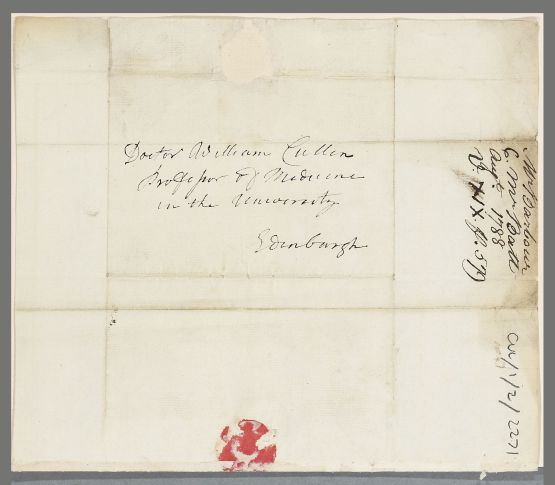 Doctor William Cullen
Professor Of Medicine
in the University
Edinburgh
Mr Barbour
C. Mr Batt
Augt. 1788
V. XIX. p. 579
CUL/1/2/2271